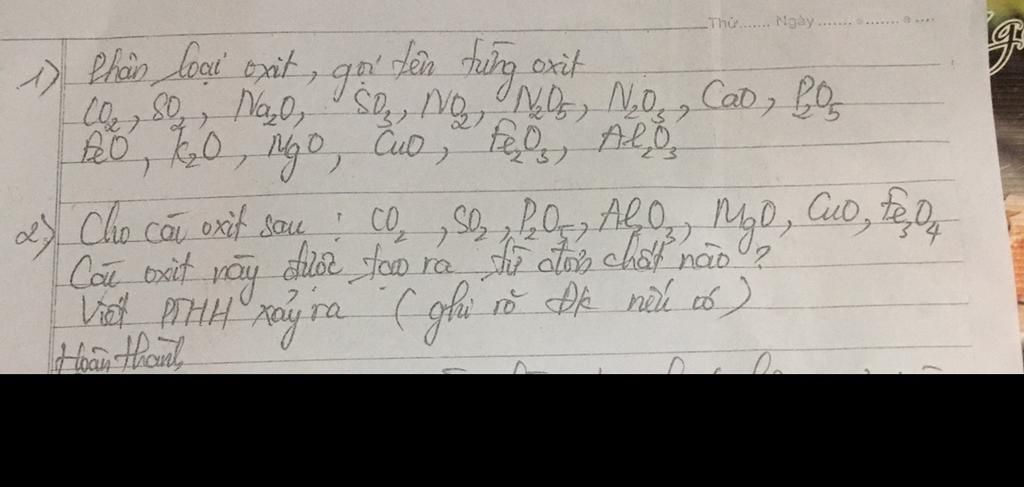 Thứ....... Ngày.......
1) Phân loại oxit, gọi tên từng oxit
CO₂, SO₂, Na₂O, SO₃, NO₂, N₂O₅, N₂O₃, CaO, P₂O₅
FeO, K₂O, MgO, CuO, Fe₂O₃, Al₂O₃
2) Cho các oxit sau : CO₂, SO₂, P₂O₅, Al₂O₃, MgO, CuO, Fe₃O₄
Các oxit này được tạo ra từ đơn chất nào ?
Viết PTHH xảy ra (ghi rõ Đk nếu có)
Hoàn thành